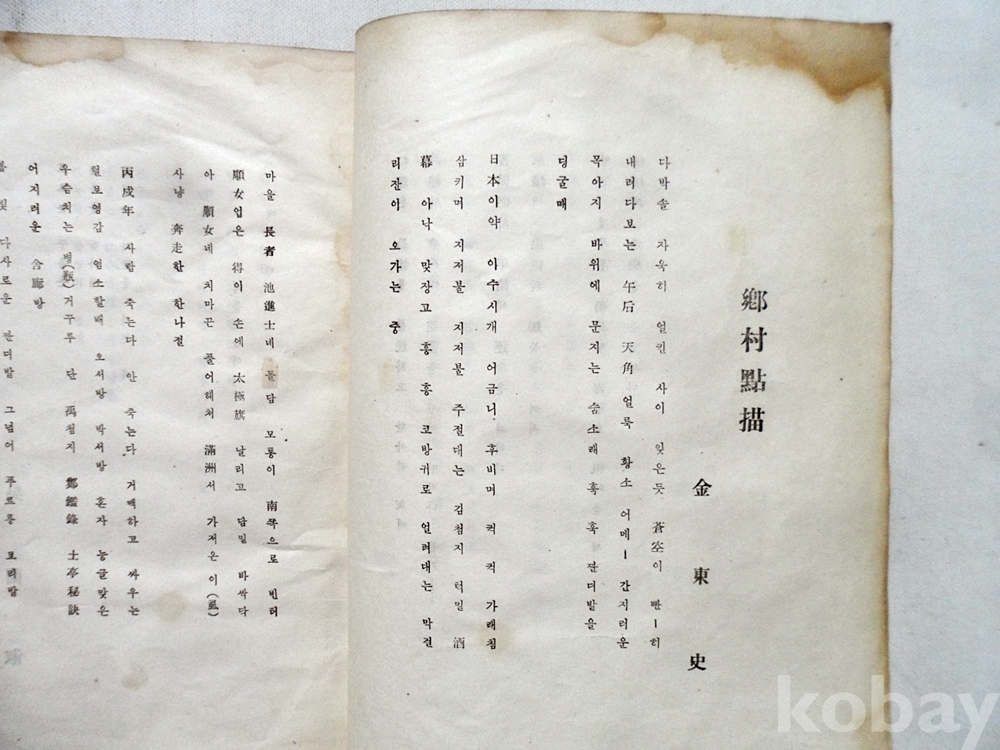 鄕村點描
金東史
다박솔 자욱히 얼킨 사이 잊은듯 蒼空이 빤ー히
내려다보는 午后 天角 얼룩 황소 어메ー 간지러운
목아지 바위에 문지는 숨소래 훅 훅 잔디밭을
딩굴매
日本이약 아수시개 어금니 후비며 컥 컥 가래침
삼키며 지저불 지저불 주절대는 김첨지 턱밑 酒
幕 아낙 맞장고 흥 흥 코방귀로 얼려대는 막걸
리잔이 오가는 중
마을 長者 池進士네 돌담 모퉁이 南쪽으로 빈터
順女업은 得이 손에 太極旗 날리고 담밑 바싹닥
아 順女네 치마끈 풀어헤처 滿洲서 가저온 이(風)
사냥 奔走한 한나절
丙戌年 사람 죽는다 안 죽는다 거백하고 싸우는
털보영감 염소할배 오서방 박서방 혼자 능글맞은
우숨치는 병(甁)거꾸루 단 禹첨지 鄭鑑錄 土亭秘訣
어지러운 舍廊방
다사로운 잔디밭 그넘어 푸르릉 보리밭
kobay